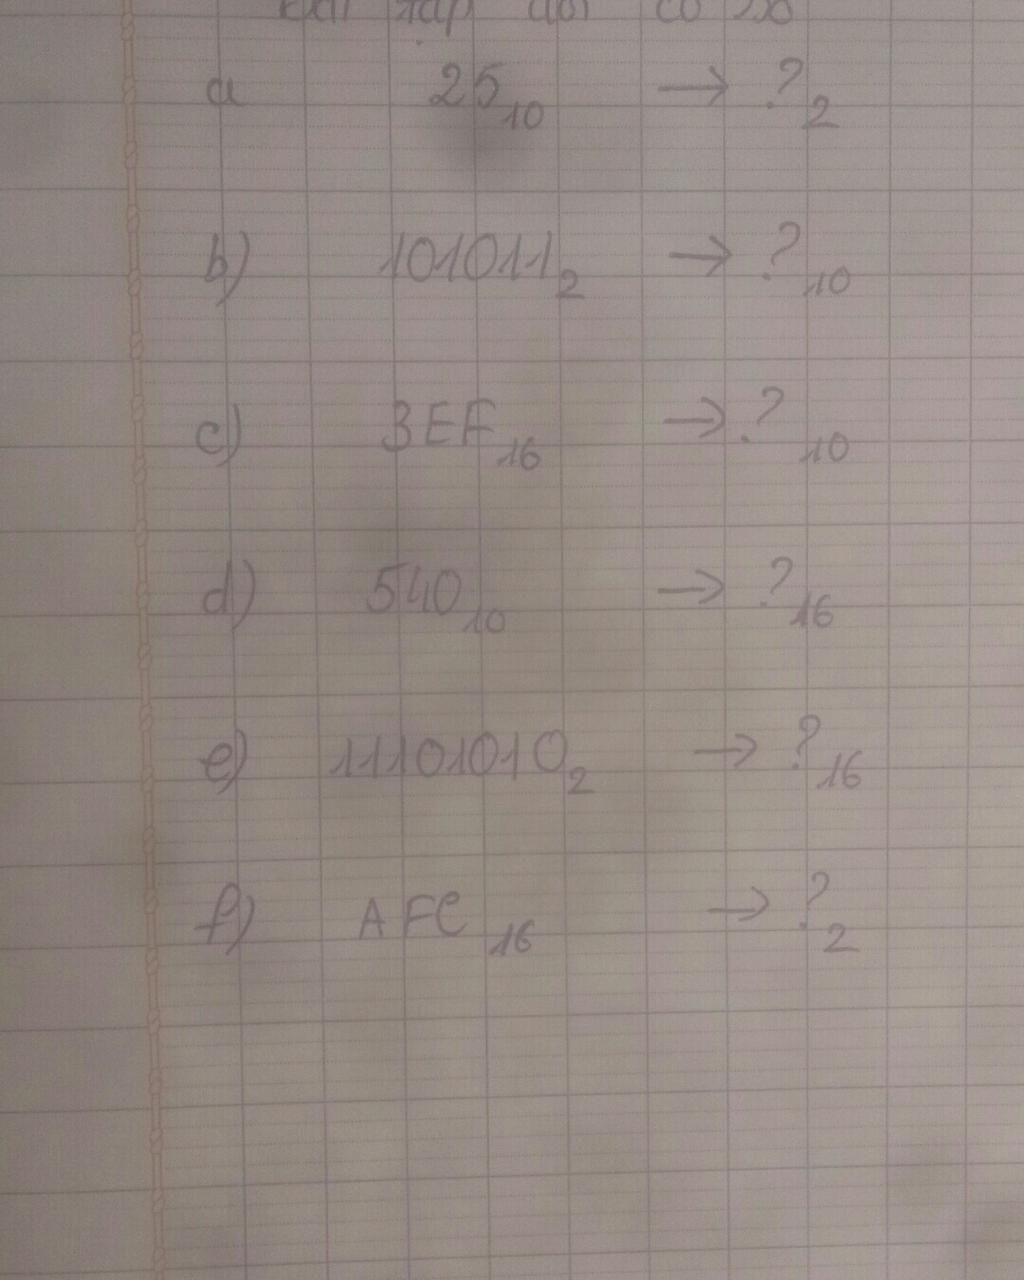 a 25₁₀ → ?₂
b) 101011₂ → ?₁₀
c) 3EF₁₆ → ?₁₀
d) 540₁₀ → ?₁₆
e) 11101010₂ → ?₁₆
f) AFC₁₆ → ?₂